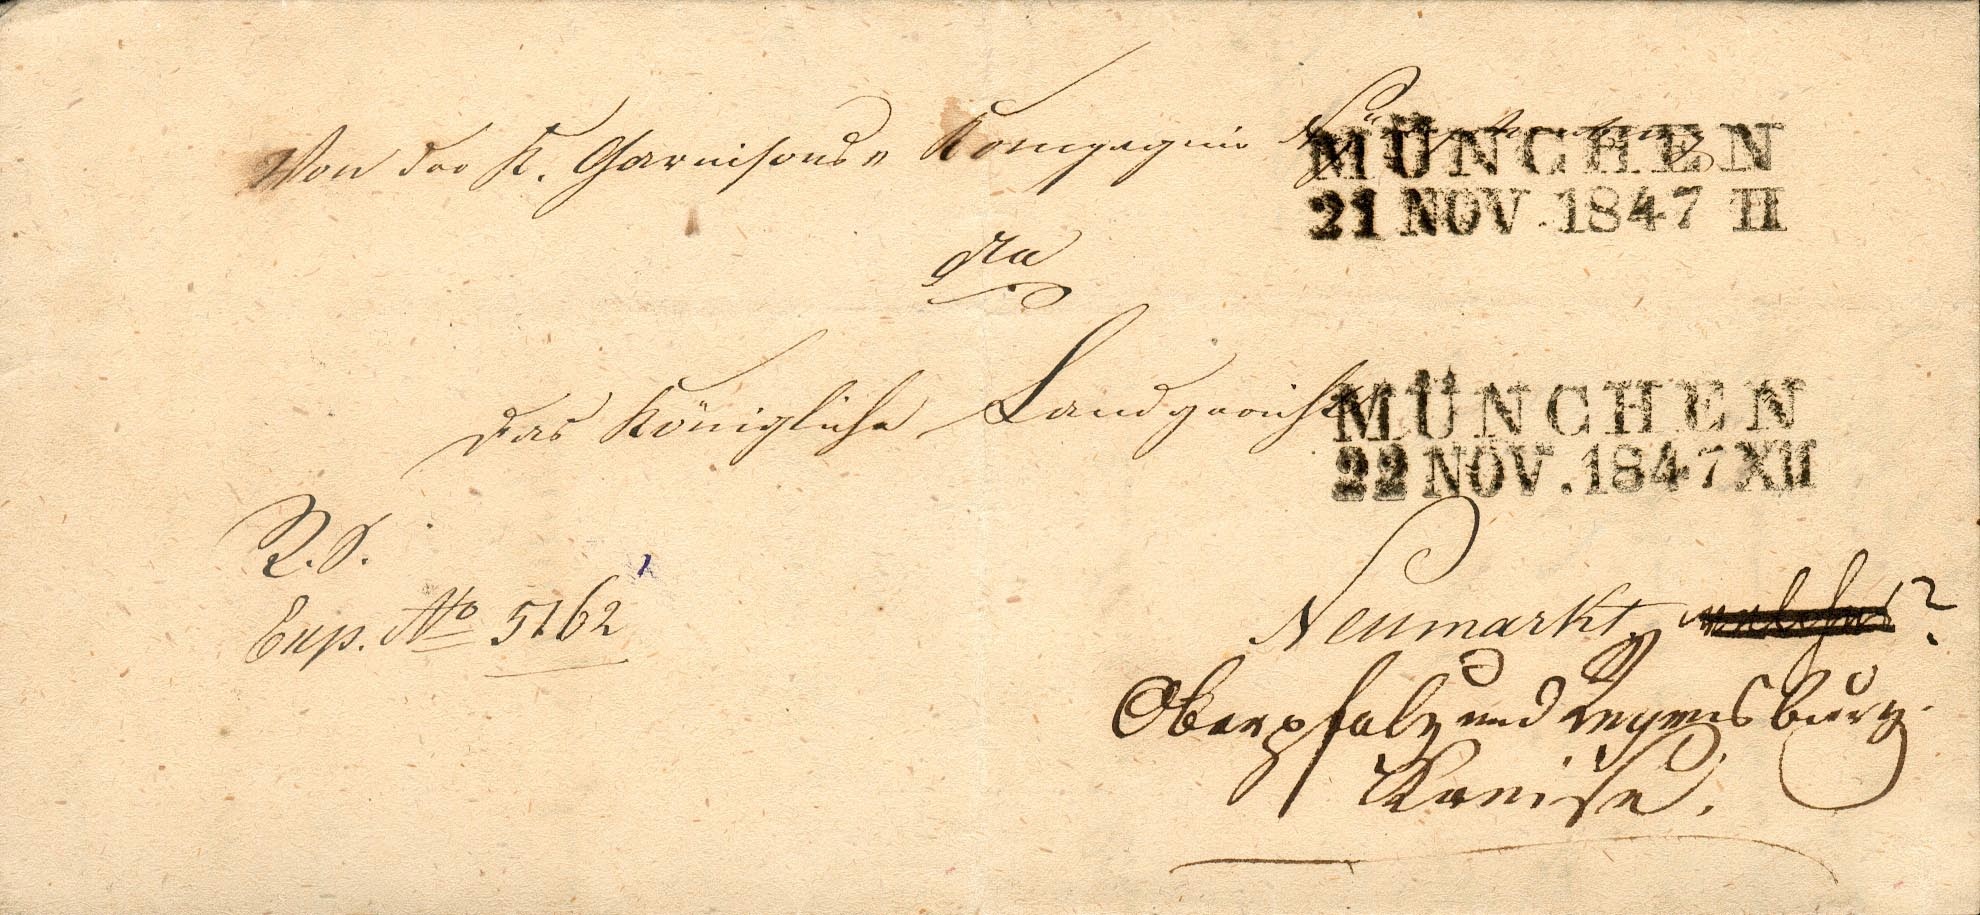 Von der K. Garnisons-Kompagnie Nymphenburg
MÜNCHEN
21 NOV. 1847 II
An
das Königliche Landgericht
MÜNCHEN
22 NOV. 1847 XII
R. S.
Exp. No 5162
Neumarkt, welches?
Oberpfalz und Regensburg.
Kreise.